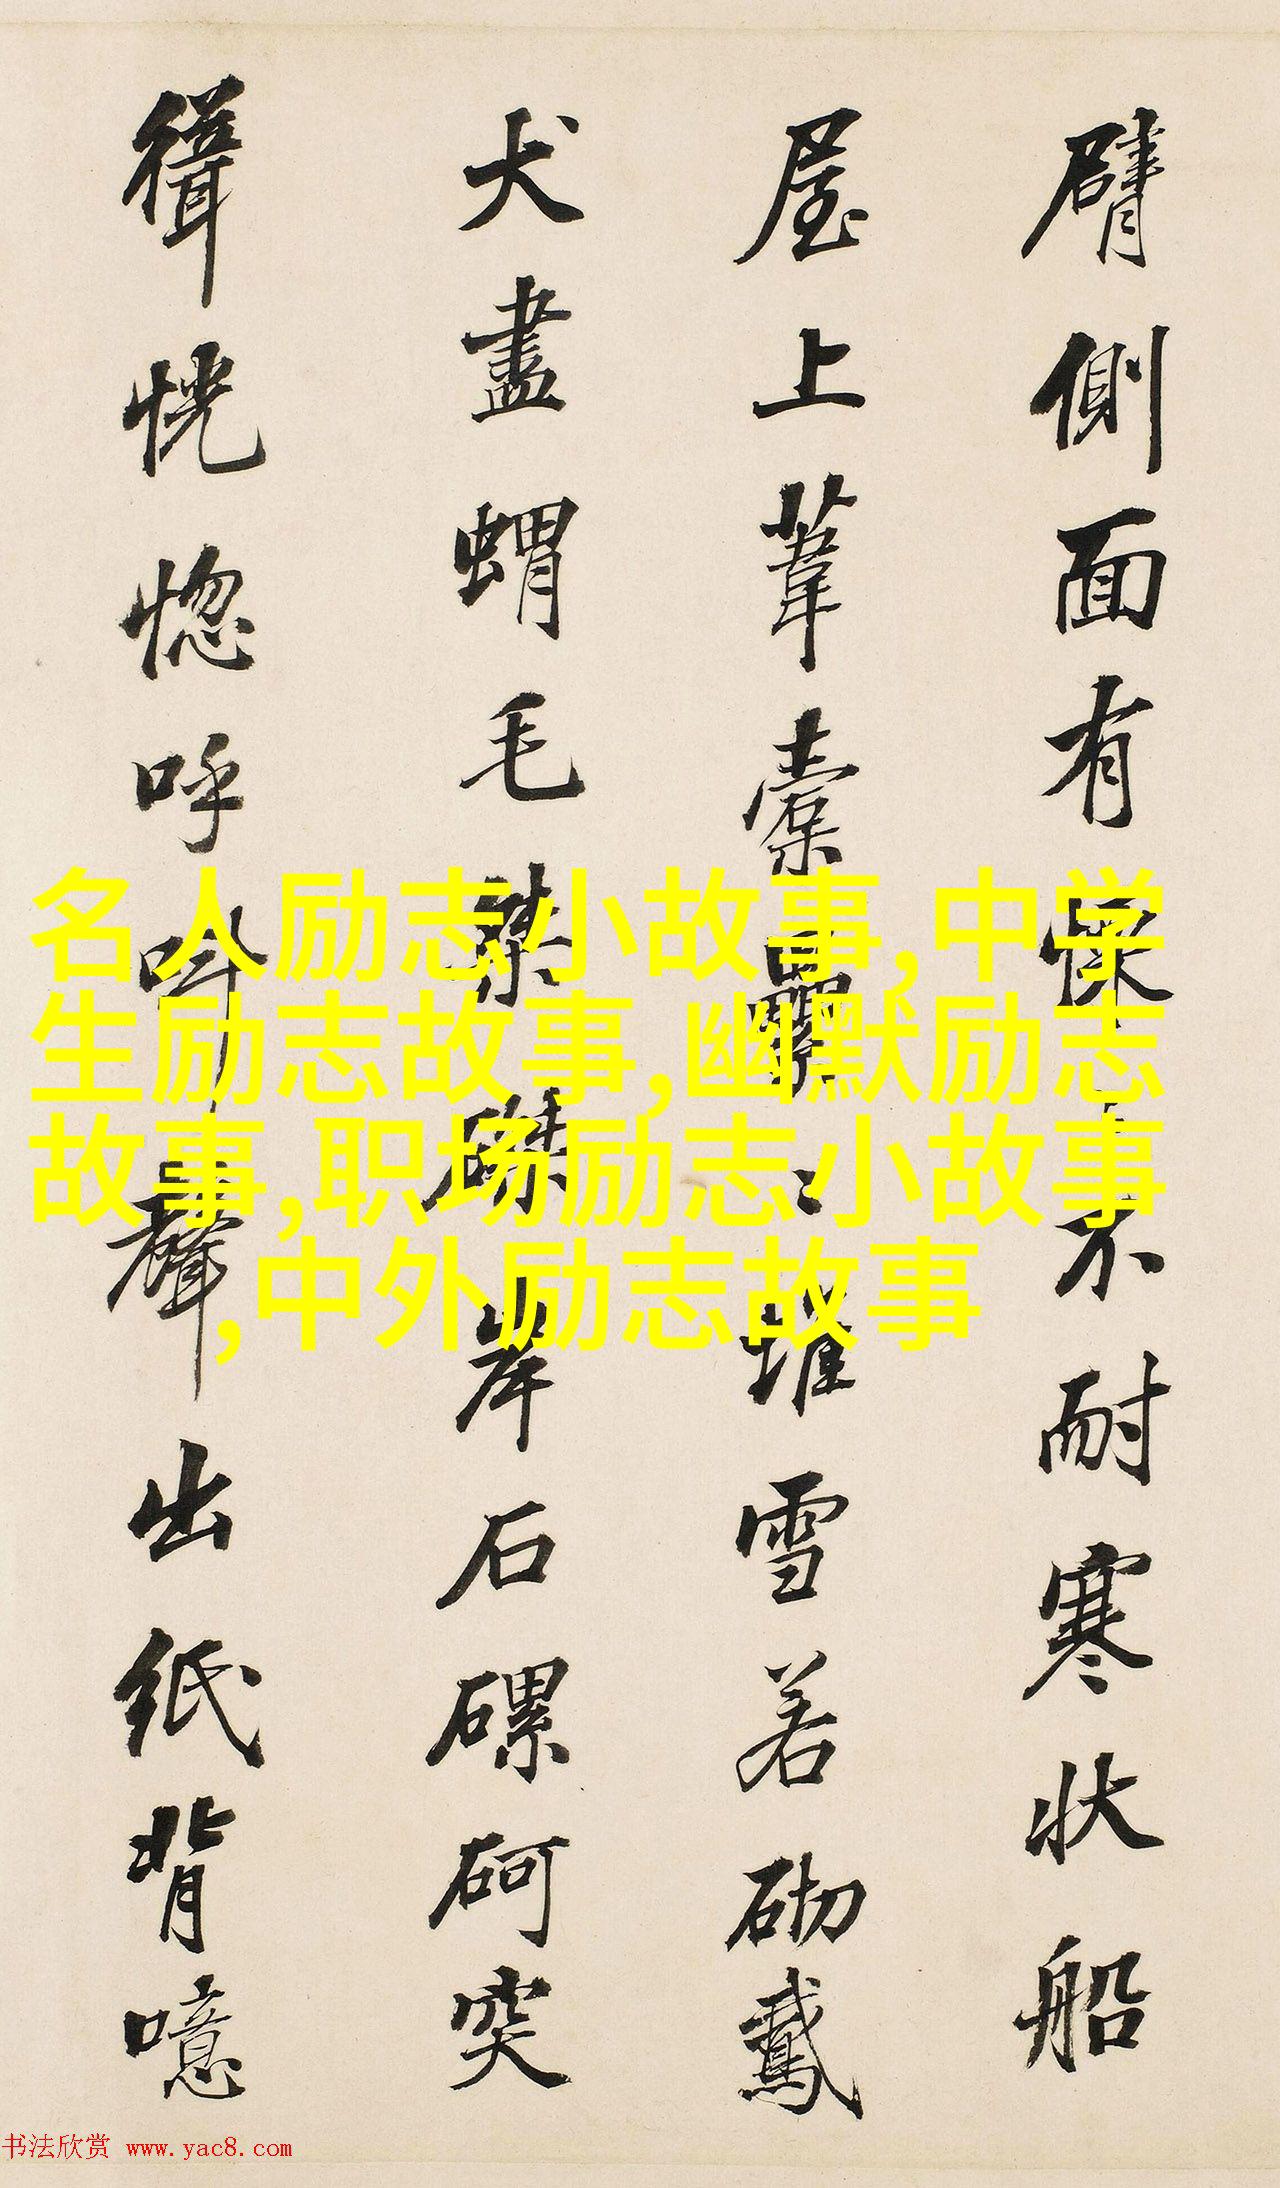 臂側面有慄不耐寒狀船
屋上葦橐纍〻堆雪若砌鵞
犬盡蝟毛磔磔岸石磥砢突
緝恍惚呼吟聲出紙背噫
名人励志小故事,中学
生励志故事,幽默励志
故事,职场励志小故事
,中外励志故事
书法欣赏 www.yac8.com